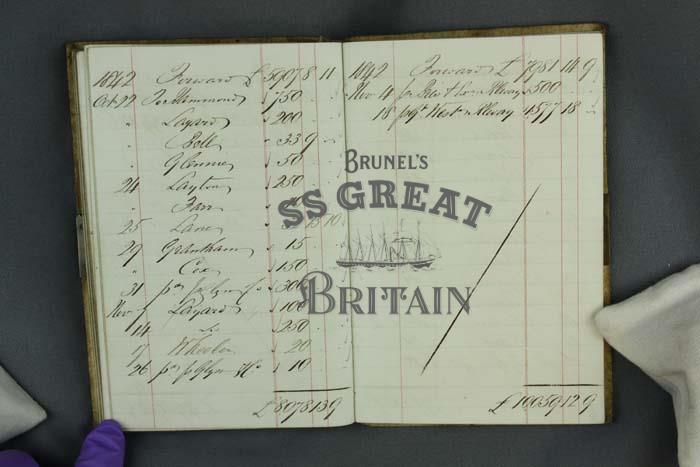 1842 Forward £ 5907 8 11
Oct 22 Hammond 750
" Layard 200
" 33 9
" Glennie 50
24 Layton 250
" Farr
25 Lane 15 10
29 Grantham 15
" Cox 150
31 300
Nov 1 Layard 100
14 250
17 Wheeler 20
26 10
£8078 13 9
1842 Forward £ 7981 14 9
Nov 4 Rlway 500
18 West n Rlway 1577 18
£10059 12 9
BRUNEL'S
SS GREAT
BRITAIN